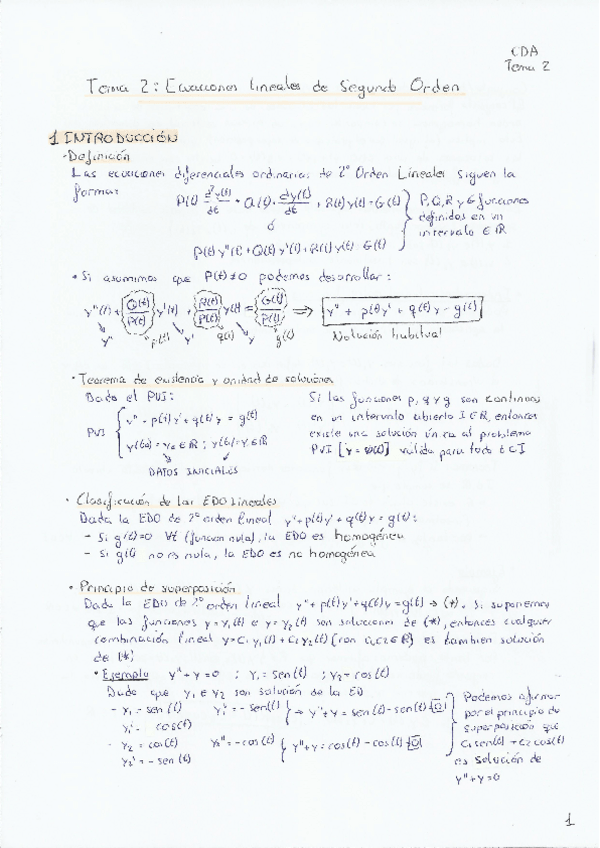 CDA
Tema 2
Tema 2: Ecuaciones lineales de Segundo Orden
1 INTRODUCCIÓN
- Definición
Las ecuaciones diferenciales ordinarias de 2º Orden Lineales siguen la
forma: P(t) d²y(t)/dt + Q(t) · dy(t)/dt + R(t) y(t) = G(t) } P, Q, R y G funciones
ó definidas en un
P(t) y''(t) + Q(t) y'(t) + R(t) y(t) = G(t) intervalo ∈ ℝ
• Si asumimos que P(t) ≠ 0 podemos desarrollar:
y''(t) + Q(t)/P(t) y'(t) + R(t)/P(t) y(t) = G(t)/P(t) ⟹ y'' + p(t)y' + q(t)y = g(t)
y'' p(t) y' q(t) y g(t) Notación habitual
• Teorema de existencia y unidad de soluciones
Dado el PVI: Si las funciones p, q y g son continuas
PVI { y'' + p(t)y' + q(t)y = g(t) en un intervalo abierto I ∈ ℝ, entonces
y(t0) = y0 ∈ ℝ ; y'(t0) = y1 ∈ ℝ existe una solución única al problema
DATOS INICIALES PVI [y = φ(t)] válida para todo t ∈ I
• Clasificación de las EDO Lineales
Dada la EDO de 2º orden lineal y'' + p(t)y' + q(t)y = g(t):
- Si g(t)=0 ∀t (funcion nula), la EDO es homogénea
- Si g(t) no es nula, la EDO es no homogénea
• Principio de superposición
Dada la EDO de 2º orden lineal y'' + p(t)y' + q(t)y = g(t) → (*). Si suponemos
que las funciones y = y1(t) e y = y2(t) son soluciones de (*), entonces cualquier
combinación lineal y = c1 y1(t) + c2 y2(t) [con c1, c2 ∈ ℝ] es tambien solución
de (*)
• Ejemplo y'' + y = 0 ; y1 = sen(t) ; y2 = cos(t)
Dado que y1 e y2 son solución de la ED
- y1 = sen(t) y1'' = -sen(t) } → y'' + y = sen(t) - sen(t) = 0
y1' = cos(t)
- y2 = cos(t) y2'' = -cos(t) { y'' + y = cos(t) - cos(t) = 0
y2' = -sen(t)
Podemos afirmar
por el principio de
superposición que
c1 sen(t) + c2 cos(t)
es solución de
y'' + y = 0
1